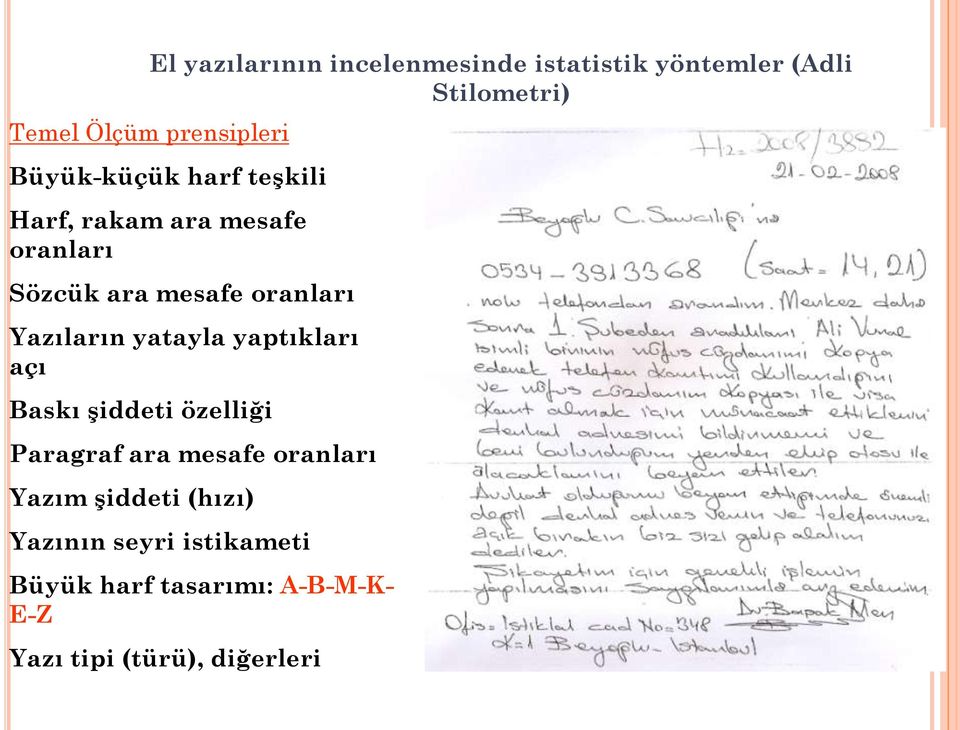 El yazılarının incelenmesinde istatistik yöntemler (Adli
Stilometri)
Temel Ölçüm prensipleri
Büyük-küçük harf teşkili
Harf, rakam ara mesafe
oranları
Sözcük ara mesafe oranları
Yazıların yatayla yaptıkları
açı
Baskı şiddeti özelliği
Paragraf ara mesafe oranları
Yazım şiddeti (hızı)
Yazının seyri istikameti
Büyük harf tasarımı: A-B-M-K-
E-Z
Yazı tipi (türü), diğerleri
Hz= 2008/3882
21-02-2008
Beyoğlu C. Savcılığı'na
0534-3913368 (Saat= 14,21)
nolu telefondan arandım. Merkez daha
Sonra 1. Şubeden aradıklarını Ali
isimli birinin nüfus cüzdanımı kopya
ederek telefon kartımı kullandığını
ve nüfus cüzdanım kopyası ile visa
kart almak için müracaat ettiklerini
derhal adresimi bildirmemi ve
beni bulunduğum yerden ekip otosu ile
alacaklarını beyan ettiler.
Avukat olduğumu beyan ettiğimde önemli
değil derhal adres verin ve telefonunuz
açık bırakın biz sizi gelip alalım
dediler.
Şikayetim için gerekli işlemin
yapılmasını Saygılarımla arz ederim
Av.
Ofis= İstiklal cad No=348
K=1 Beyoğlu-İstanbul